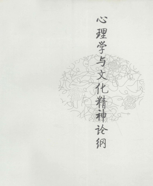 心理学与文化精神论纲